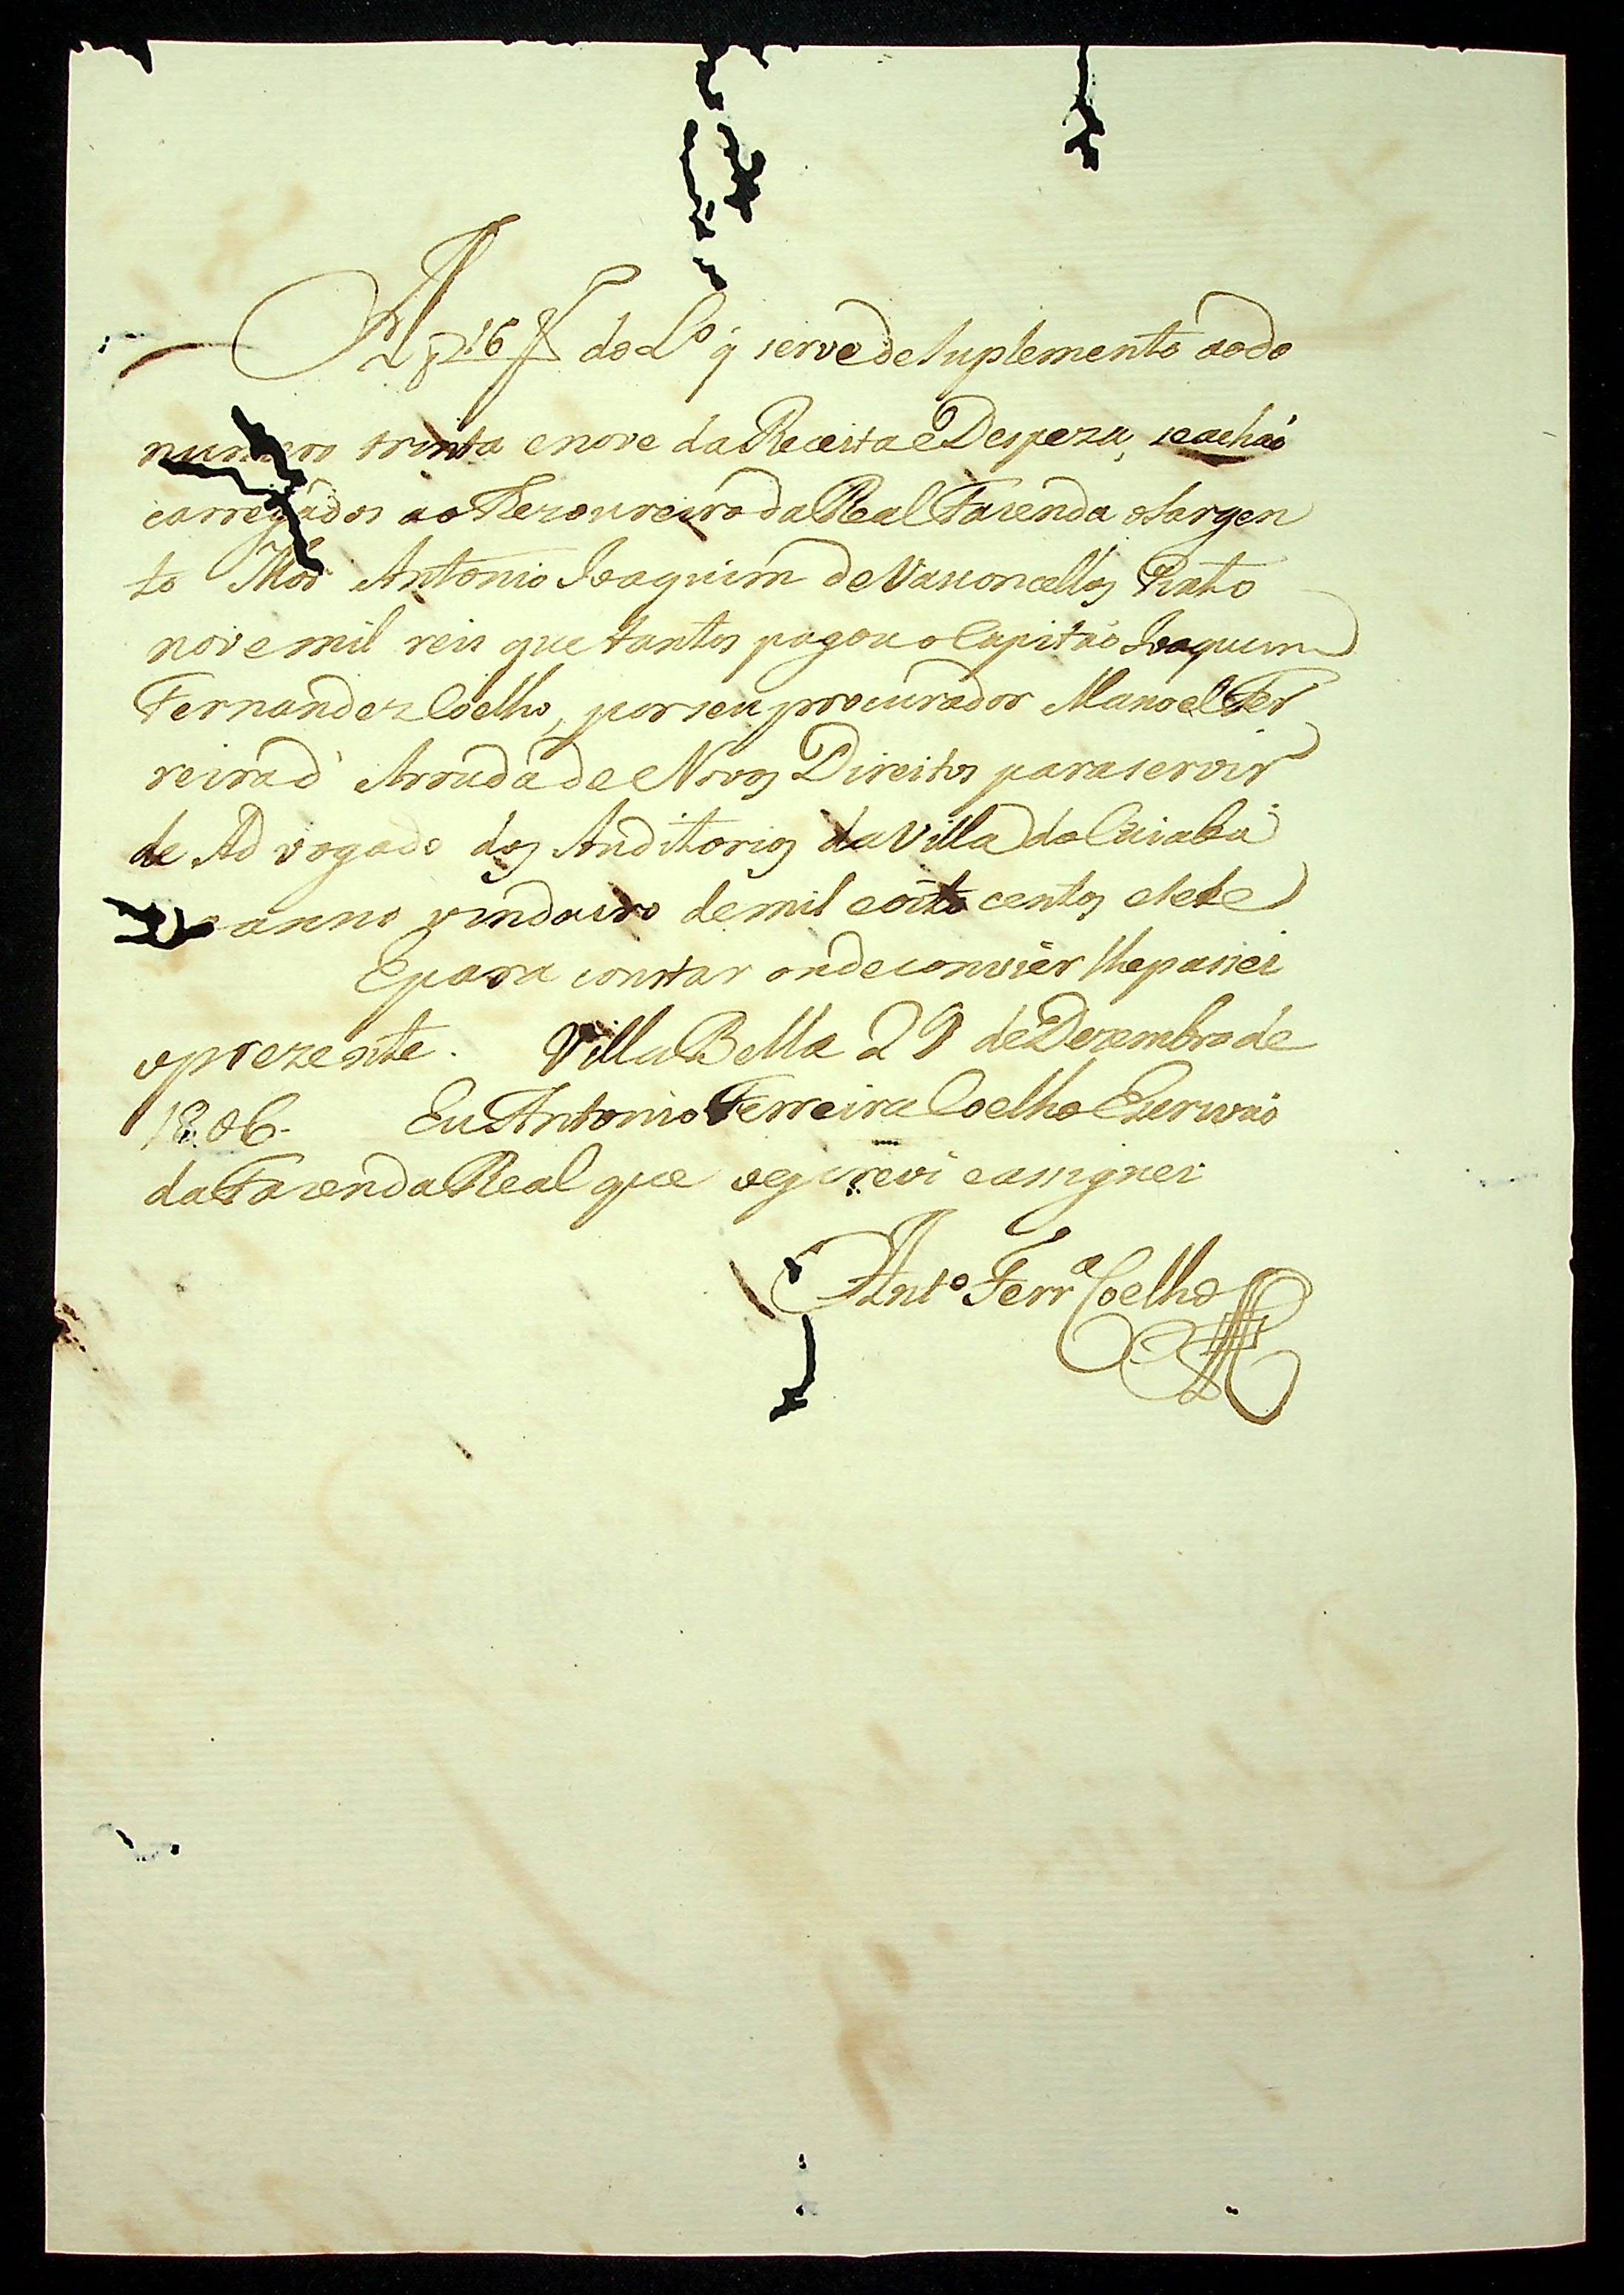 A f 16 V do Lº q̃ serve de suplemento ao do
numero trinta e nove da Receita e Despeza, se achaõ
carregados ao Thezoureiro da Real Fazenda o Sargen
to Mór Antonio Joaquim de Vasconcellos Pinto
nove mil reis que tantos pagou o Capitaõ Joaquim
Fernandez Coelho, por seu procurador Manoel Fer
reira d' Arruda de Novos Direitos para servir
de Advogado dos Auditorios da Villa do Cuiabá
o anno vindouro de mil e oito centos e sete
E para constar onde convier lhe passei
o prezente. Villa Bella 29 de Dezembro de
1806. Eu Antonio Ferreira Coelho Escrivaõ
da Fazenda Real que o escrevi e assignei
Antº Ferrª Coelho